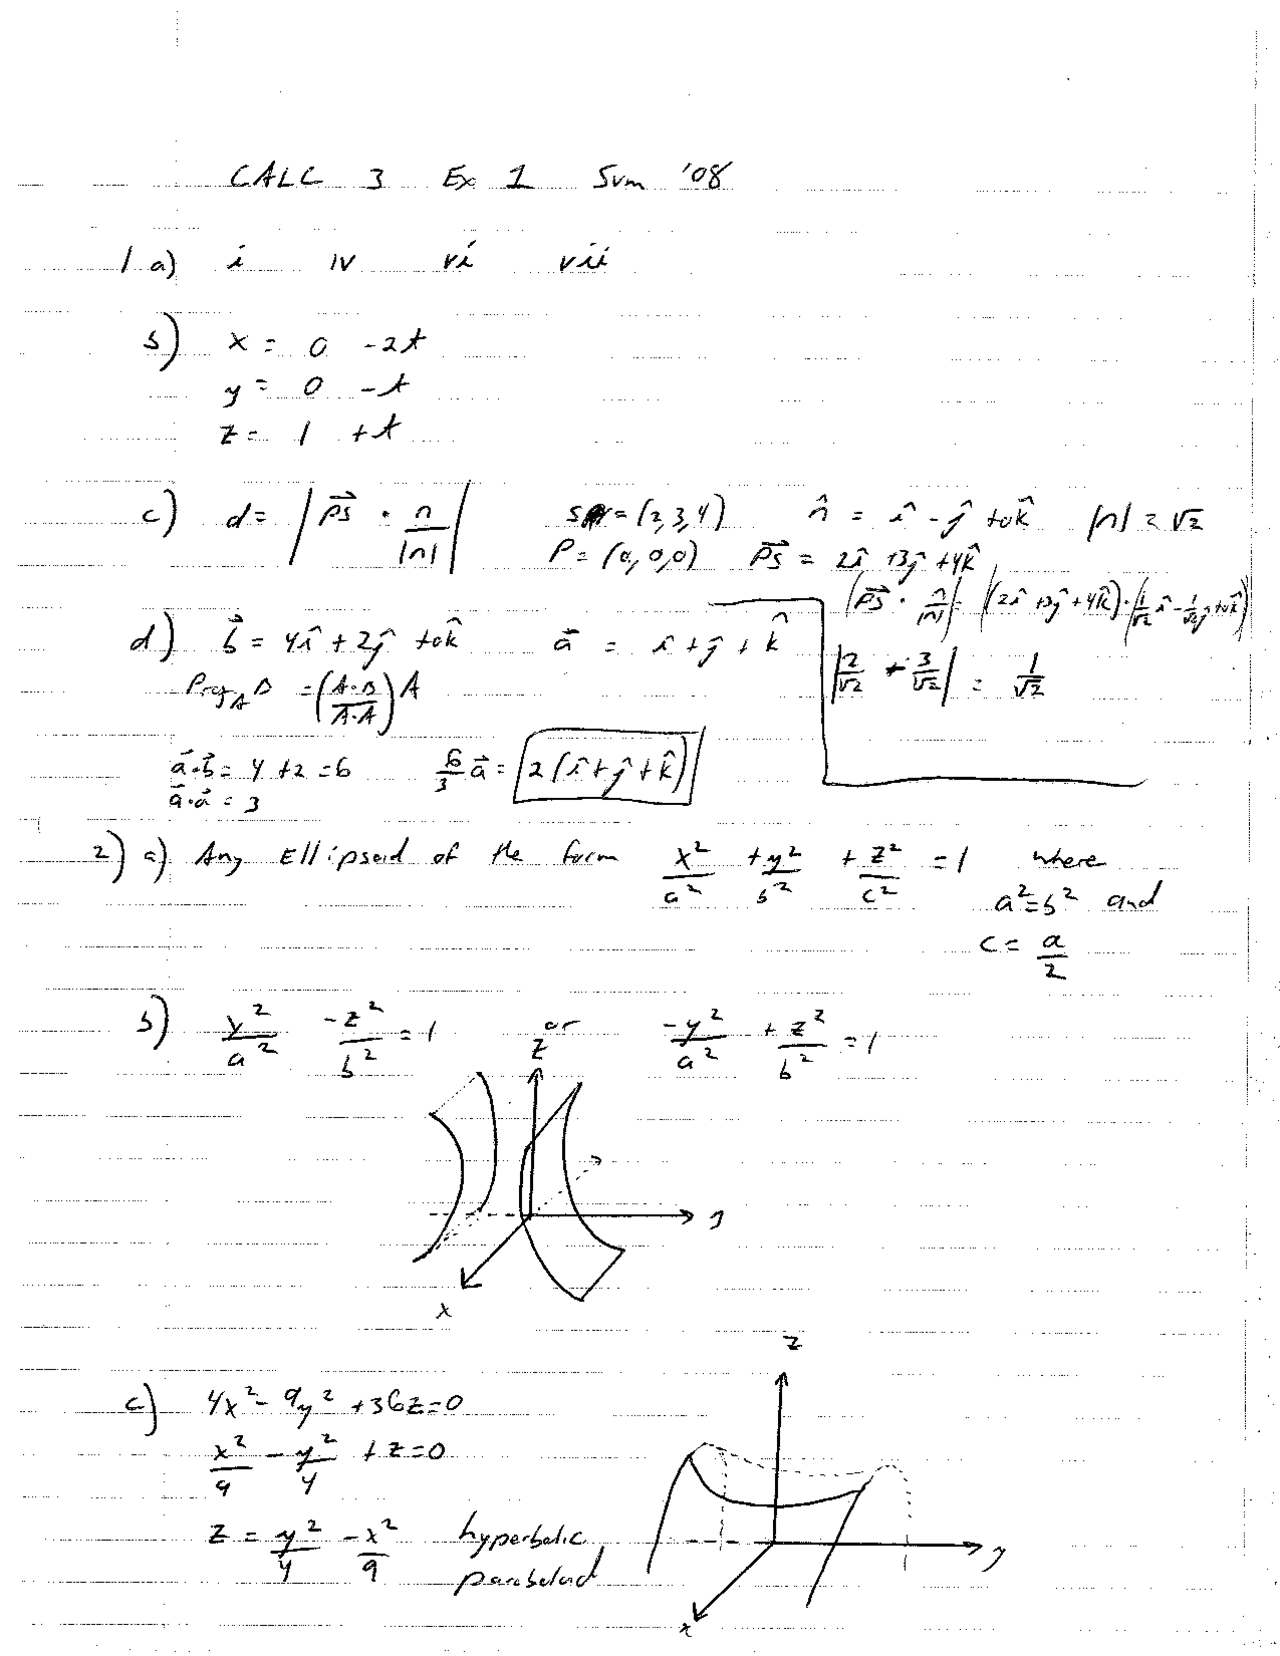 CALC 3 Ex 1 Sum '08
1 a) i iv vi vii
b) x = 0 -2t
y = 0 -t
z = 1 +t
c) d = | PS⃗ · n/|n| | S = (2,3,4) n̂ = î - ĵ +0k̂ |n| = √2
P = (0,0,0) PS⃗ = 2î +3ĵ +4k̂
|PS⃗ · n/|n|| = |(2î +3ĵ +4k̂)·(1/√2 î - 1/√2 ĵ +0k̂)|
|2/√2 + 3/√2| = 1/√2
d) b⃗ = 4î + 2ĵ +0k̂ a⃗ = î + ĵ + k̂
Proj_A B = (A·B/A·A) A
a⃗·b⃗ = 4 +2 = 6 6/3 a⃗ = 2(î + ĵ + k̂)
a⃗·a⃗ = 3
2) a) Any Ellipsoid of the form x²/a² + y²/b² + z²/c² = 1 where
a²=b² and
c = a/2
b) y²/a² - z²/b² = 1 or -y²/a² + z²/b² = 1
z
y
x
z
c) 4x² - 9y² + 36z = 0
x²/9 - y²/4 + z = 0
z = y²/4 - x²/9 hyperbolic
paraboloid
y
x